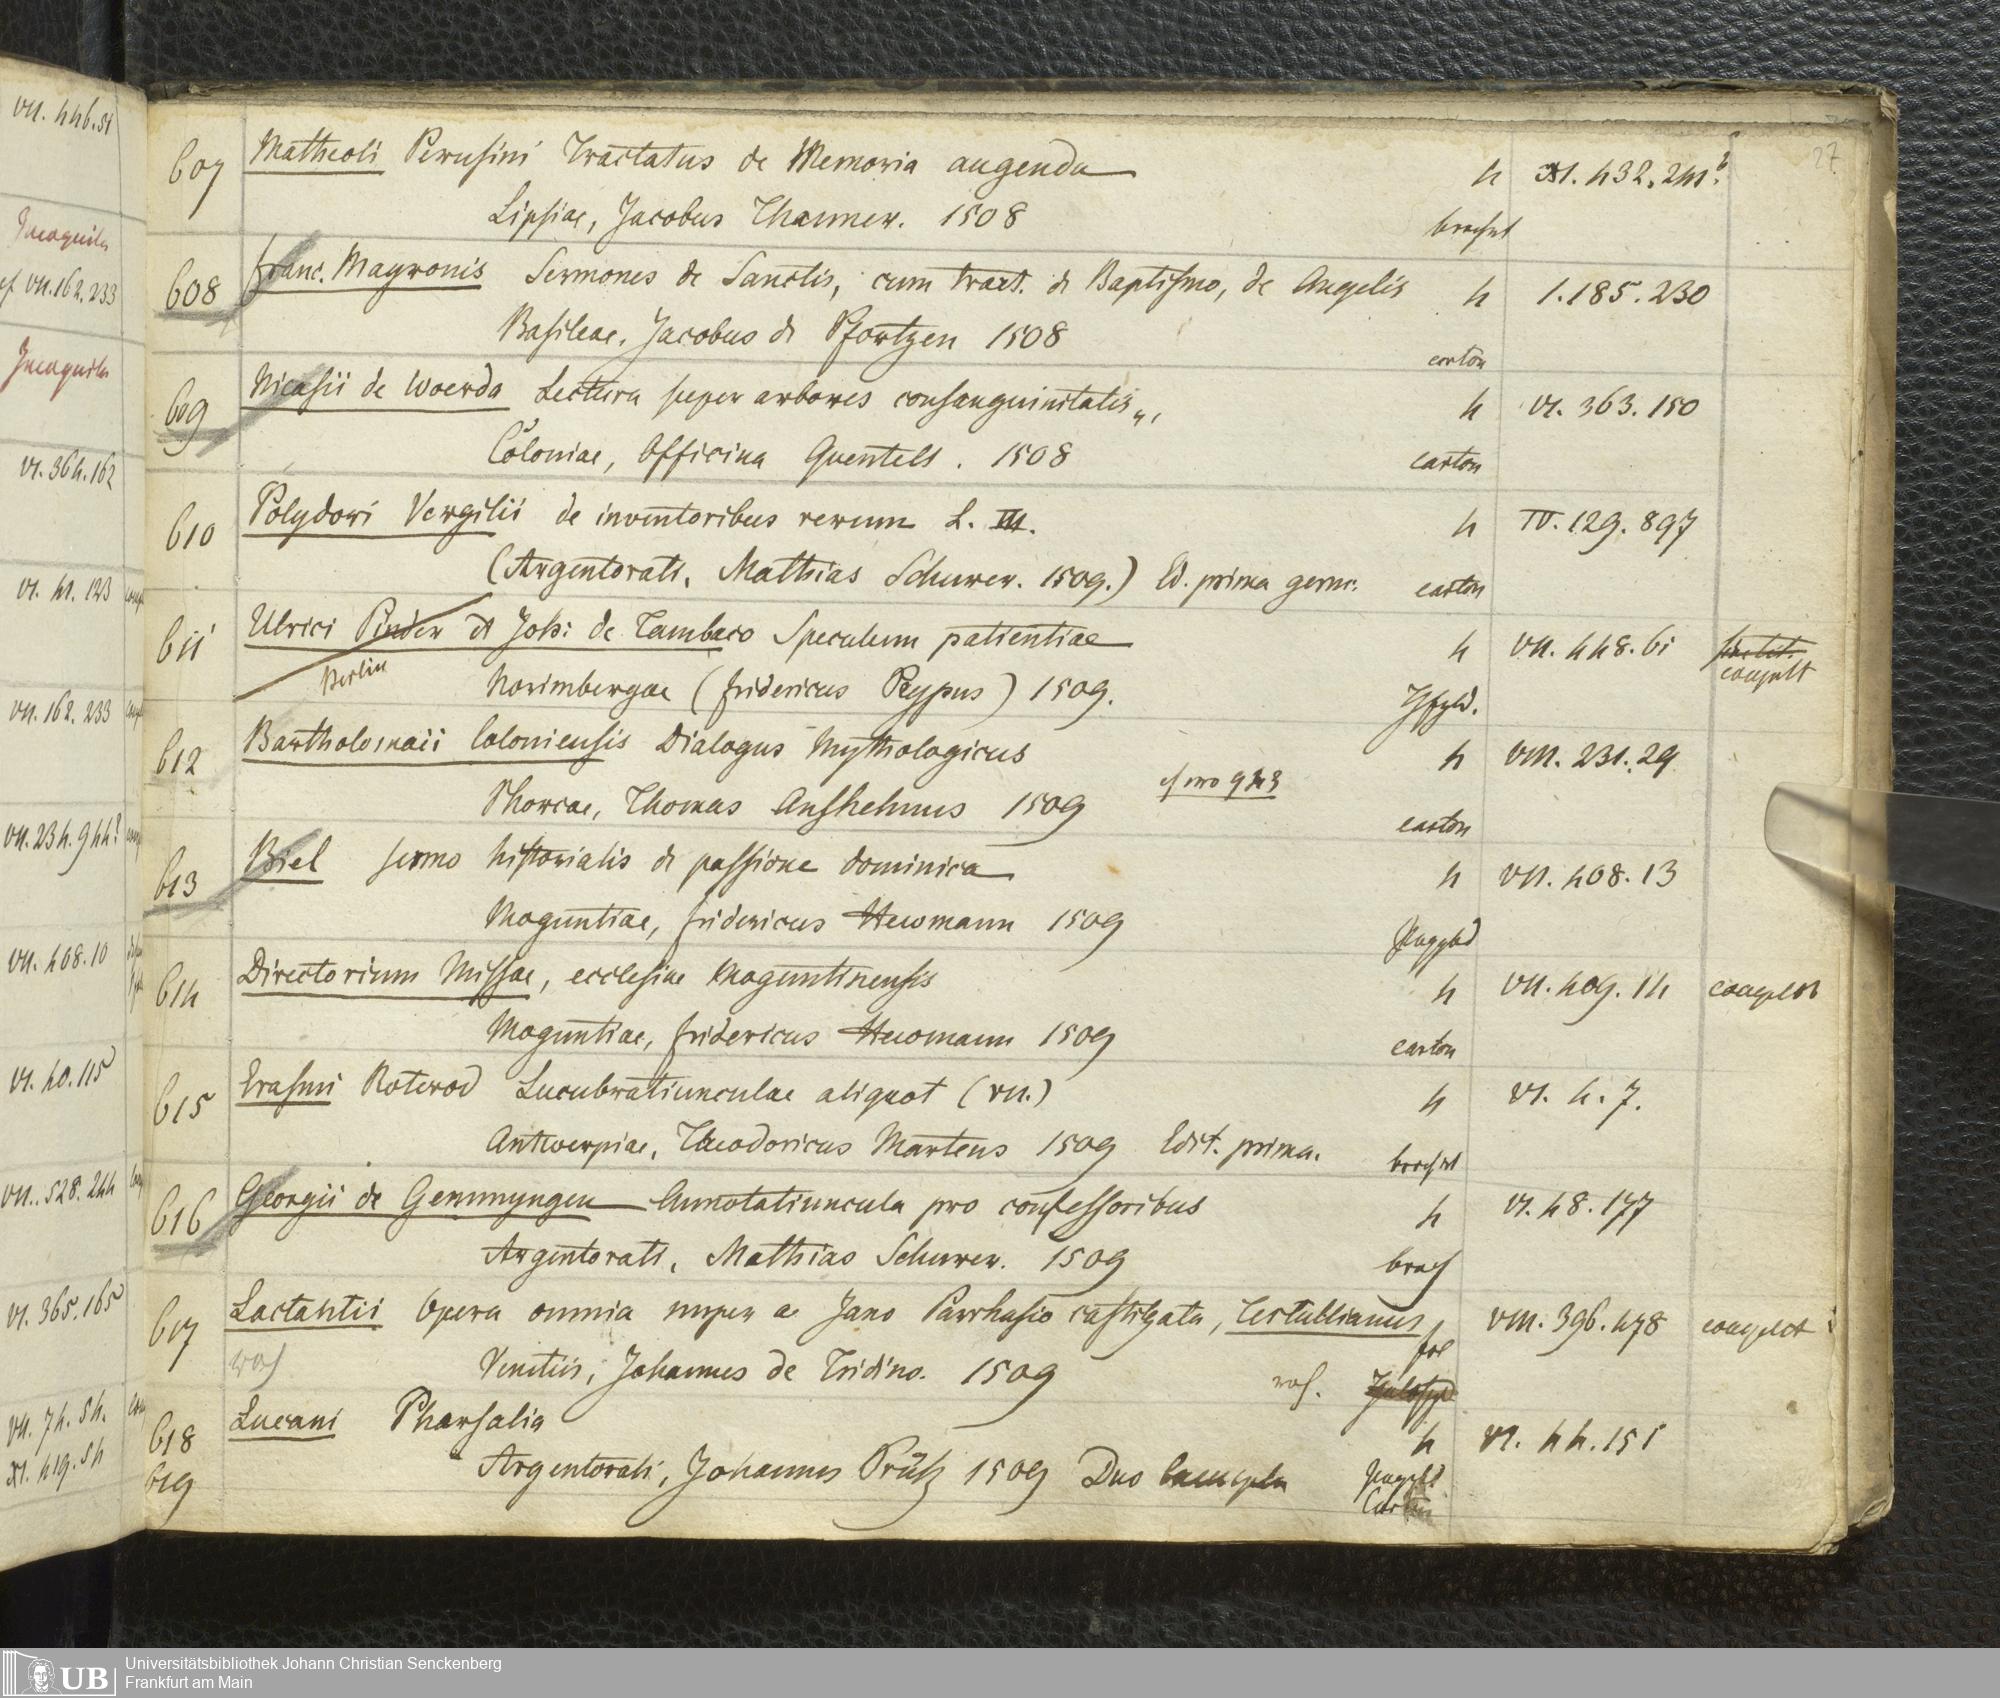 VII. 446.51
Incognita
cf VII.162.233
Incognita
VI. 364.162
VI. 41. 123
VII. 162. 233
VII. 234. 944?
VII. 408.10
VI. 40. 115
VII. 528. 244
VI. 365. 165
VII. 74. 54.
XI. 419. 54
27
607 Matheoli Perusini Tractatus de Memoria augenda 4 XI. 432. 241.b
Lipsiae, Jacobus Thanner. 1508 brochirt
608 Franc. Mayronis Sermones de Sanctis, cum tract. de Baptismo, de Angelis 4 I. 185. 230
Basileae, Jacobus de Pfortzen 1508 carton
609 Nicasii de Woerda Lectura super arbores consanguinitatis 4 VI. 363. 150
Coloniae, Officina Quentels. 1508 carton
610 Polydori Vergilii de inventoribus rerum L. III. 4 IV. 129. 897
(Argentorati, Mathias Schurer. 1509.) Ed. prima germ. carton
611 Ulrici Pinder et Joh: de Tambaco Speculum patientiae 4 VII. 448. 61 complt
Berlin Norimbergae (Fridericus Peypus) 1509.
612 Bartholomaii Coloniensis Dialogus Mythologicus 4 VIII. 231. 29
Phorcae, Thomas Anshelmus 1509 cf no 943 carton
613 Biel sermo historialis de passione dominica 4 VII. 408. 13
Moguntiae, Fridericus Hewmann 1509 Pappbd
614 Directorium Missae, ecclesiae Moguntinensis 4 VII. 409. 14 complet
Moguntiae, Fridericus Hewmann 1509 carton
615 Erasmi Roterod Lucubratiunculae aliquot (VII.) 4 VI. 4. 7.
Antwerpiae, Theodoricus Martens 1509 Edit. prima. brochirt
616 Georgii de Gemmyngen Annotatiuncula pro confessoribus 4 VI. 48. 177
Argentorati, Mathias Schurer. 1509 broch
617 Lactantii Opera omnia nuper a Jano Parrhasio castigata, Tertullianus fol VIII. 396. 478 complet
Venetiis, Johannes de Tridino. 1509
618 Lucani Pharsalia 4 VI. 44. 151
619 Argentorati, Johannes Prütz 1509 Duo Exempla Pappbd
Carton
UB
Universitätsbibliothek Johann Christian Senckenberg
Frankfurt am Main